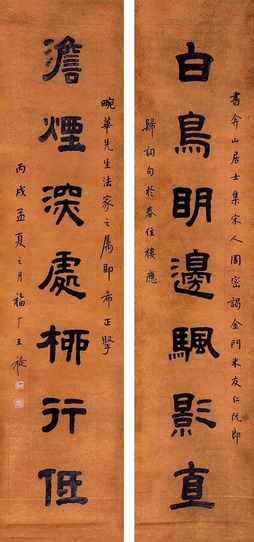 書弇山居士集宋人周密謁金門米友仁阮郎
白鳥眀邊颿影直
歸詞句於春住樓應
畹華先生法家之属即希正掔
澹煙深處桺行低
丙戌孟夏之月福厂王禔